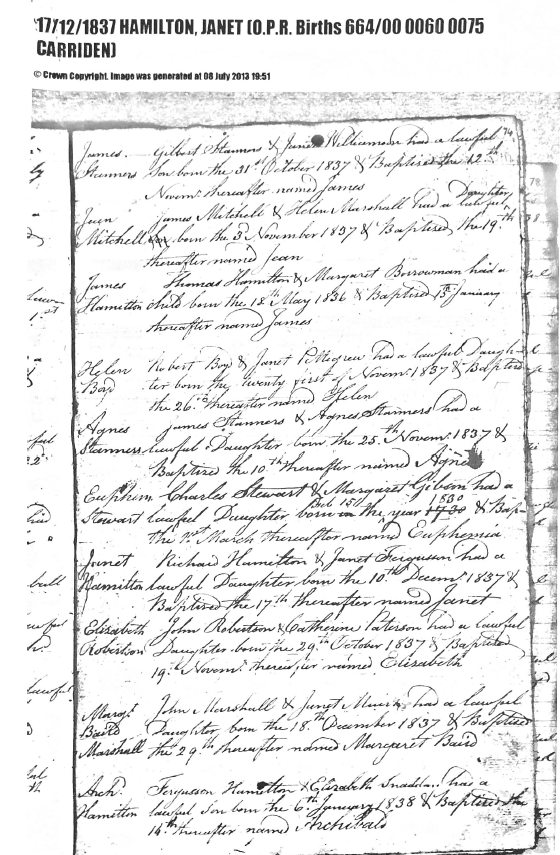 17/12/1837 HAMILTON, JANET (O.P.R. Births 664/00 0060 0075
CARRIDEN)
© Crown Copyright. Image was generated at 08 July 2013 19:51
James Gilbert Stanners & Janet Williamson had a lawful
Stanners Son born the 31st October 1837 & Baptized the 12th
Novemr thereafter named James
Jean James Mitchell & Helen Marshall had a lawful Daughter
Mitchell born the 3d November 1837 & Baptized the 19th
thereafter named Jean
James Thomas Hamilton & Margaret Borrowman had a
Hamilton child born the 12th May 1836 & Baptized January
thereafter named James
Helen Robert Boyd & Janet Pettegrew had a lawful Daugh-
Boyd ter born the twenty first of Novemr 1837 & Baptized
the 26th thereafter named Helen
Agnes James Stanners & Agnes Stanners had a
Stanners lawful Daughter born the 25th Novemr 1837 &
Baptized the 10th thereafter named Agnes
Euphem Charles Stewart & Margaret Gibson had a
Stewart lawful Daughter born in the year 1830 & Bap-
the March thereafter named Euphemia
Janet Richard Hamilton & Janet Ferguson had a
Hamilton lawful Daughter born the 10th Decemr 1837 &
Baptized the 17th thereafter named Janet
Elizabeth John Robertson & Catherine Paterson had a lawful
Robertson Daughter born the 29th October 1837 & Baptized
19th Novemr thereafter named Elizabeth
Margt John Marshall & Janet had a lawful
Baird Daughter born the 18th December 1837 & Baptized
Marshall the 29th thereafter named Margaret Baird
Archd Fergusson Hamilton & Elizabeth Snaddon had a
Hamilton lawful Son born the 6th January 1838 & Baptized the
14th thereafter named Archibald